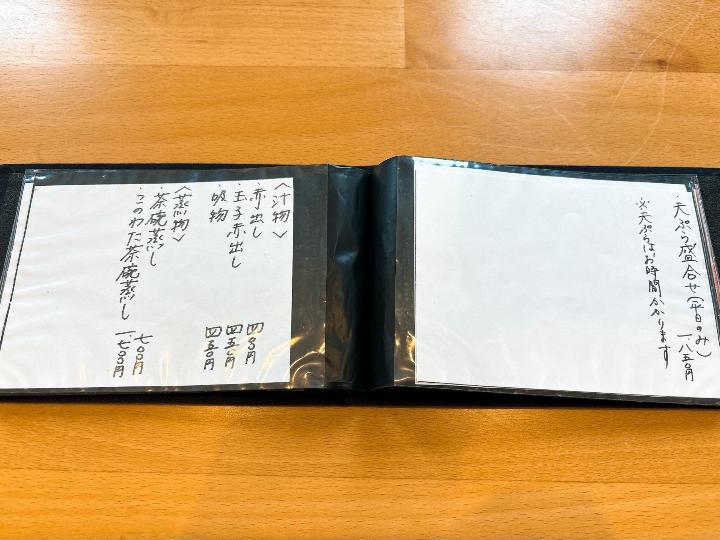 ・天ぷら盛合せ(平日のみ)
一、八五〇円
※天ぷらはお時間かかります
〈汁物〉
・赤出し 四〇〇円
・玉子赤出し 四五〇円
・吸物 四五〇円
〈蒸し物〉
・茶碗蒸し 七〇〇円
・このわた茶碗蒸し 一、七〇〇円